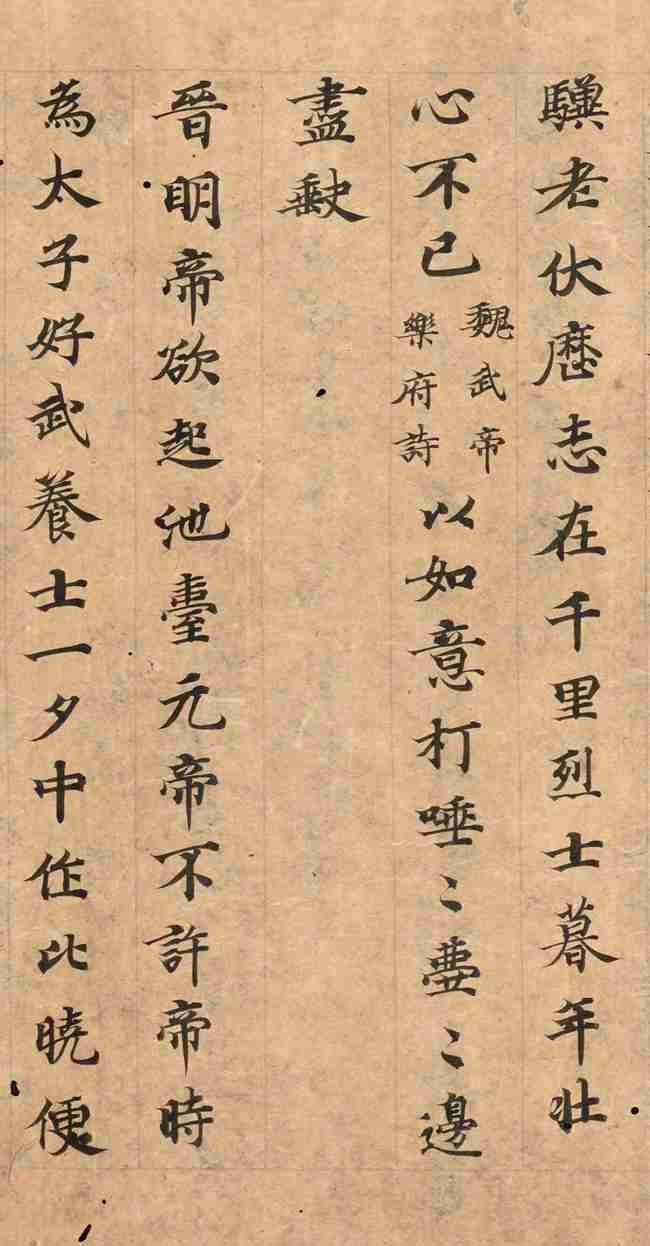 驥老伏歷志在千里烈士暮年壯
心不已魏武帝樂府詩以如意打唾〻壺〻邊
盡缺
晉明帝欲起池臺元帝不許帝時
為太子好武養士一夕中作比曉便